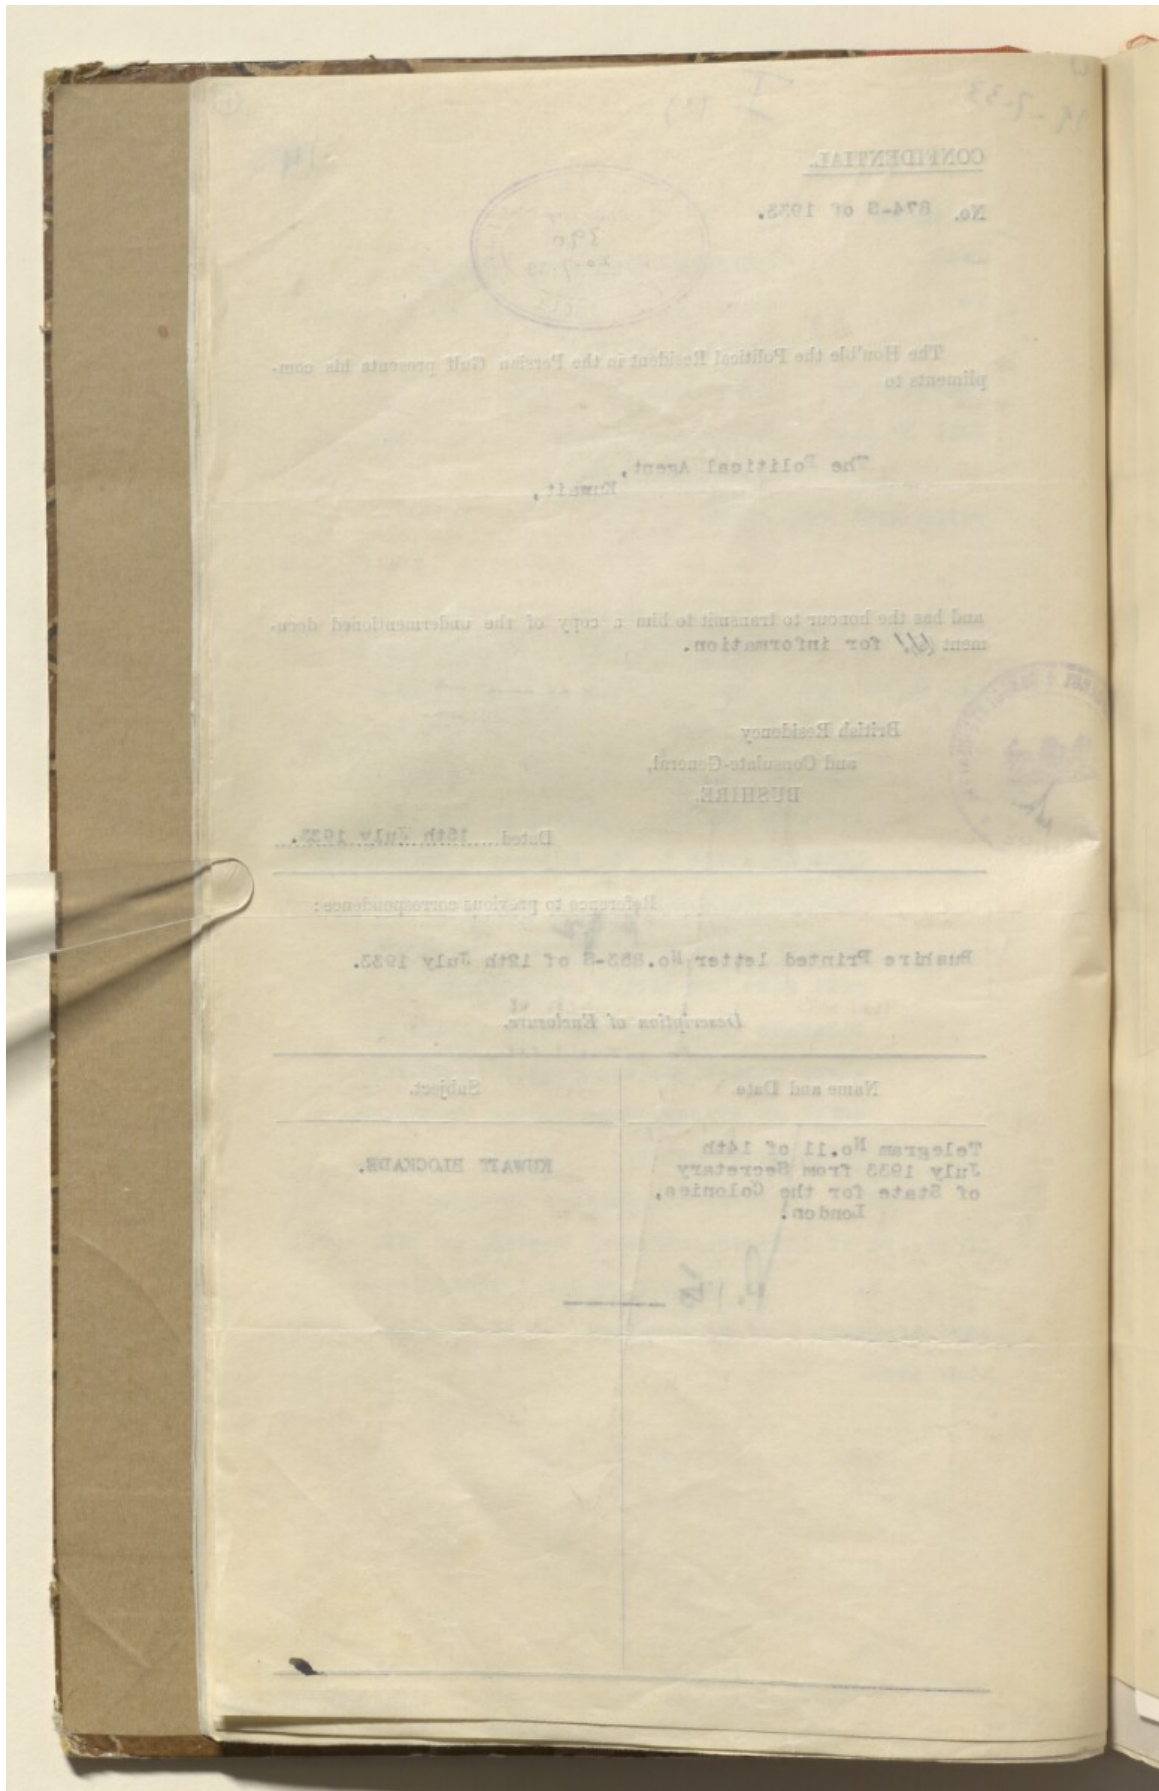 19-7-33
CONFIDENTIAL.
No. 874-S of 1933.
390
The Hon'ble the Political Resident in the Persian Gulf presents his com-
pliments to
The Political Agent,
Kuwait,
and has the honour to transmit to him a copy of the undermentioned docu-
ment for information.
British Residency
and Consulate-General,
BUSHIRE.
Dated 15th July 1933.
Reference to previous correspondence:
Bushire Printed letter No.853-S of 12th July 1933.
Description of Enclosure.
Name and Date. Subject.
Telegram No.11 of 14th
July 1933 from Secretary
of State for the Colonies,
London.
KUWAIT BLOCKADE.